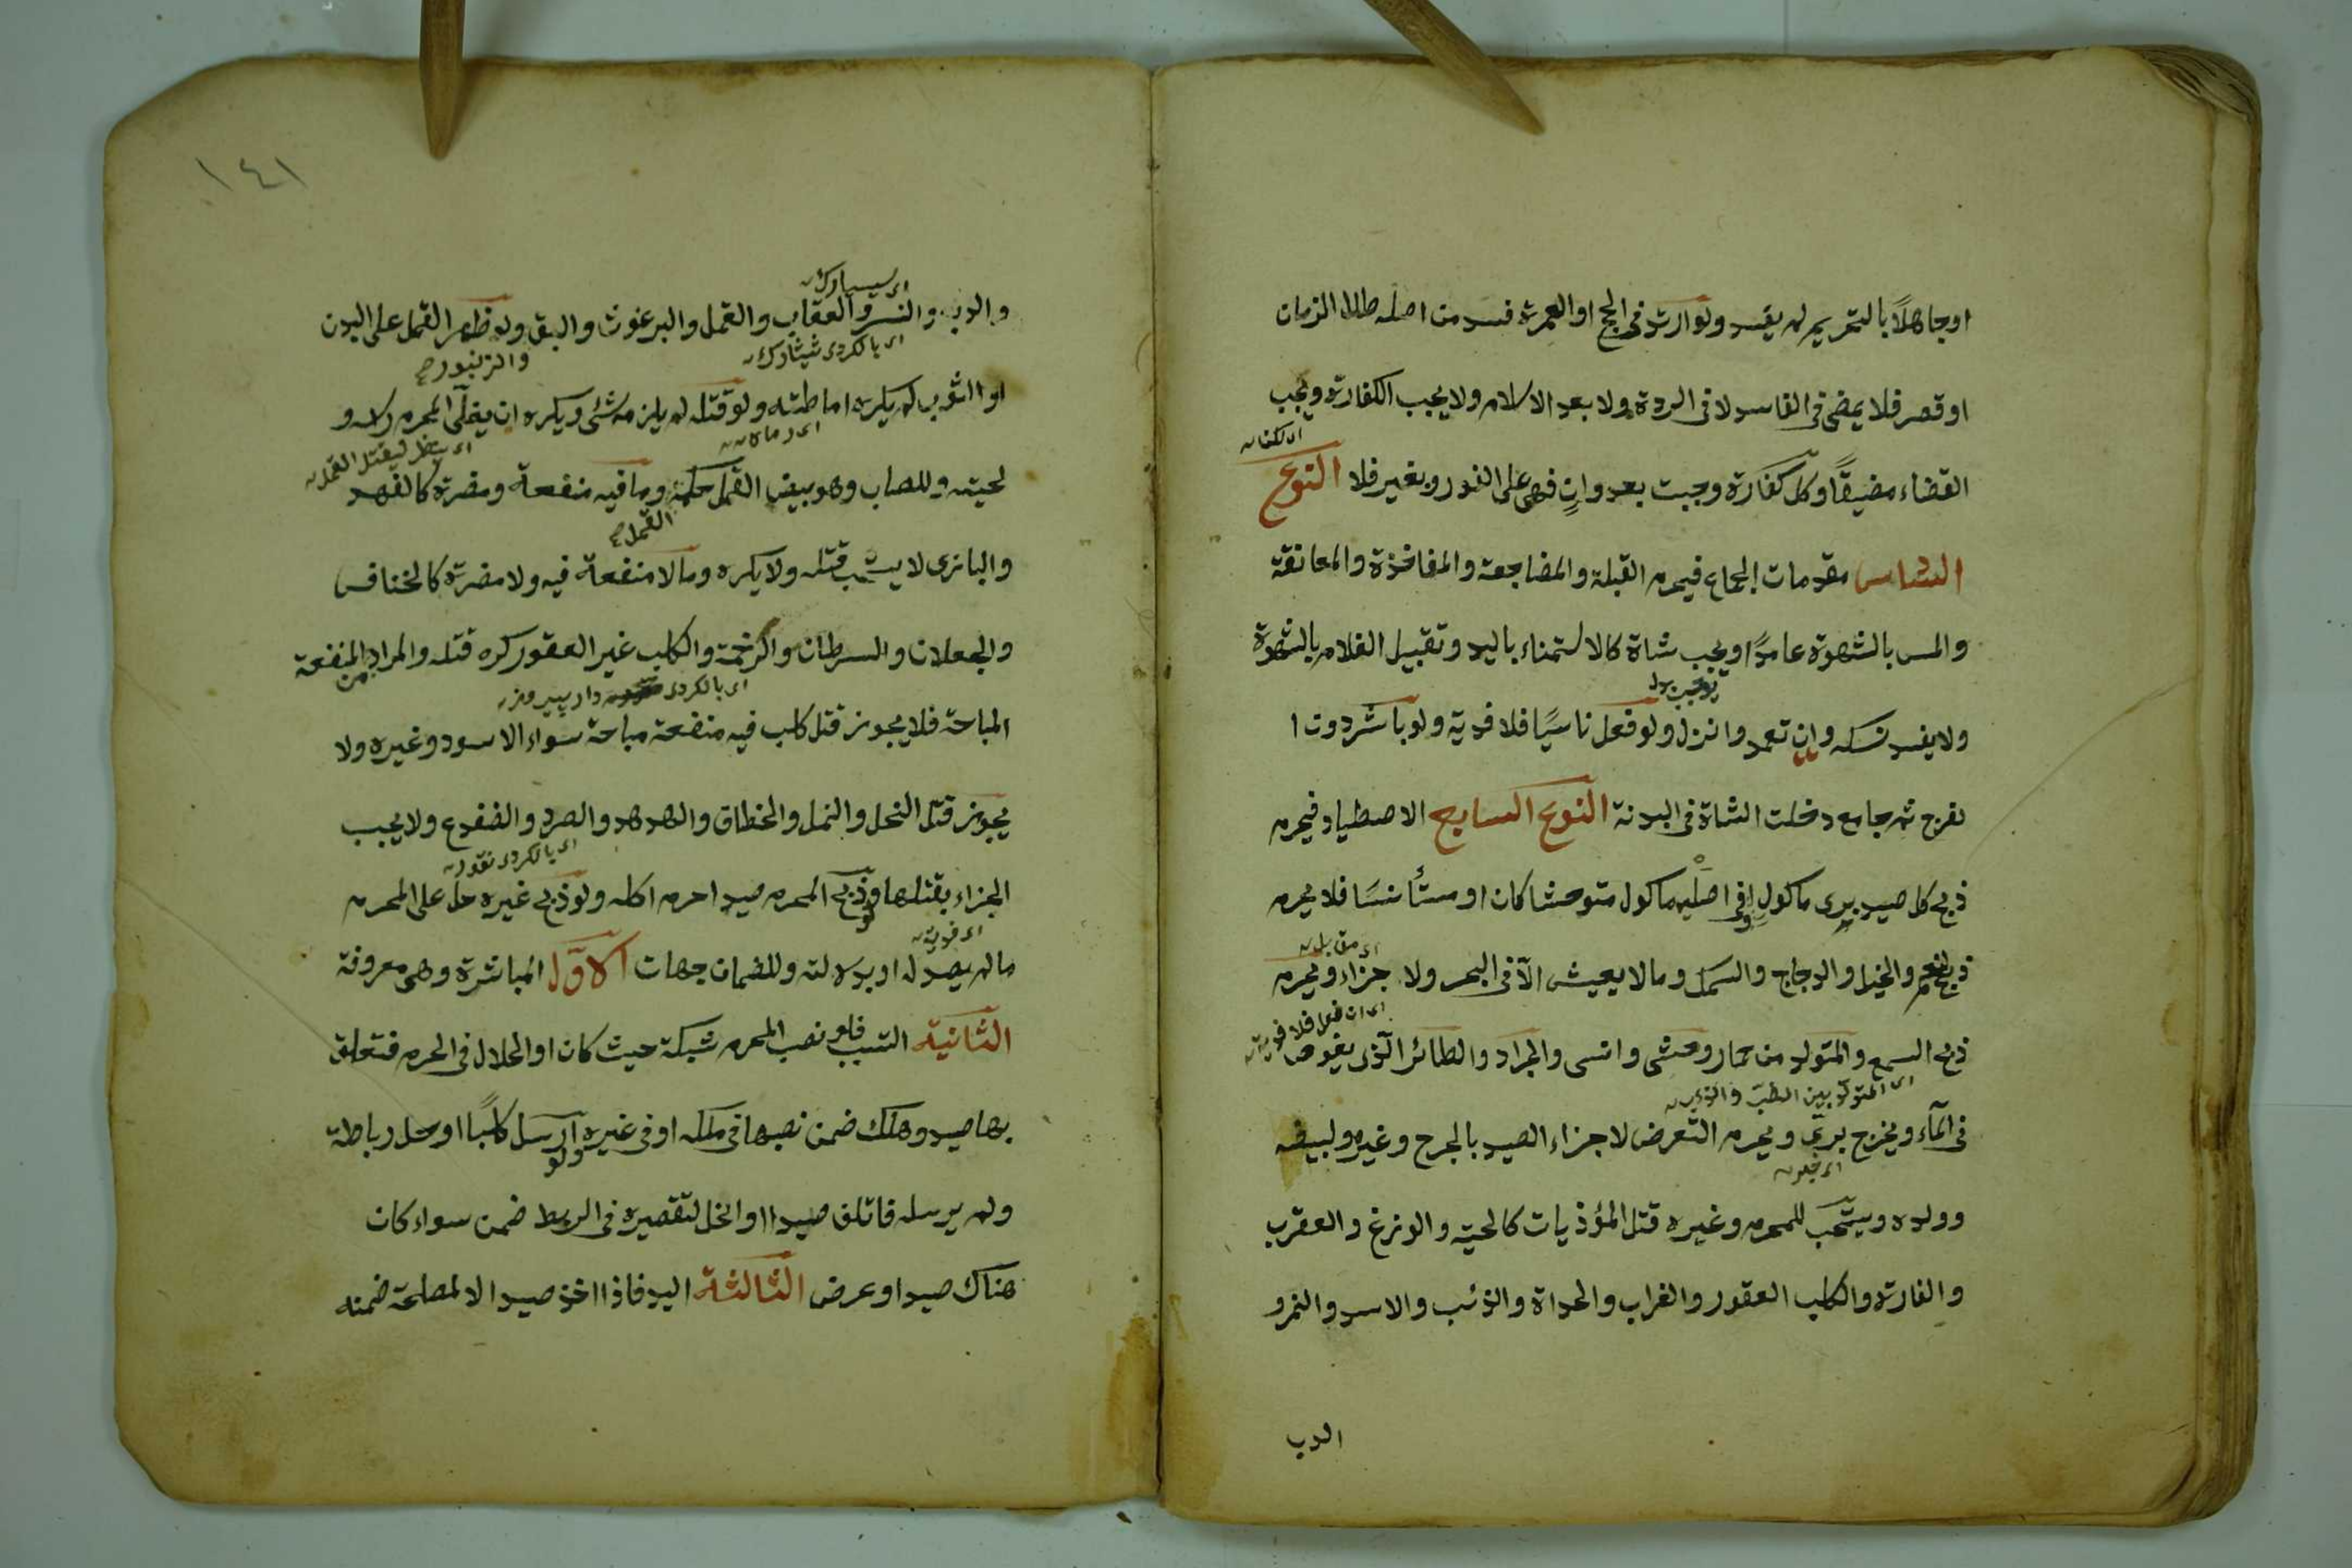 او جاهلاً بالتحريم لم يفسد ولو ارتد في الحج او العمرة فسد من اصله طال الزمان
او قصر فلا يمضى في الفاسد لا في الردة ولا بعد الاسلام ولا يجب الكفارة ويجب
القضاء مضيقًا وكل كفارة وجبت بعدوانٍ فهى على الفور وبغير فلا النوع
السادس مقدمات الجماع فيحرم القبلة والمضاجعة والمفاخذة والمعانقة
والمس بالشهوة عامدًا ويجب شاة كالاستمناء باليد وتقبيل الغلام بالشهوة
ولا يفسد نسكه وان تعمد وانزل ولو فعل ناسيًا فلا فدية ولو باشر دون ا
لفرج ثم جامع دخلت الشاة في البدنة النوع السابع الاصطياد فيحرم
ذبح كل صيد برى ماكول او في اصليه ماكول متوحشا كان او مستأنسًا فلا يحرم
اى مقابل
ذبح النعم والخيل والدجاج والسمك وما لا يعيش الّا في البحر ولا جزاء ويحرم
اى ان فعل فلا فدية
ذبح السمع والمتولد من حمار وحشى وانسى والجراد والطائر الّذى يغوص
اى المتولد بين الضبع والذئب
في المآء ويخرج برىّ ويحرم التعرض لاجزاء الصيد بالجرح وغيره ولبيضه
وولده ويستحب للمحرم وغيره قتل المؤذيات كالحية والوزغ والعقرب
والفارة والكلب العقور والغراب والحداة والذئب والاسد والنمر و
الدب
١٤١
والدب والنسر والعقاب والقمل والبرغوث والبق ولو ظهر القمل على البدن
والزنبور صح
او الثوب لم يكره اماطته ولو قتله لم يلزمه شئ ويكره ان يفلّى المحرم راسه و
اى ينظر ليقتل القمل
لحيته وللصاب وهو بيض القمل حكمه وما فيه منفعة ومضرة كالفهد
القمل صح
والبازى لا يستحب قتله ولا يكره وما لا منفعة فيه ولا مضرة كالخنافس
والجعلان والسرطان والرخمة والكلب غير العقور كره قتله والمراد من المنفعة
المباحة فلا يجوز قتل كلب فيه منفعة مباحة سواء الاسود وغيره ولا
يجوز قتل النحل والنمل والخطاف والهدهد والصرد والضفدع ولا يجب
الجزاء بقتلها ولو ذبح المحرم صيدا حرم اكله ولو ذبح غيره حل على المحرم
ما لم يصد له او بدلالته وللضمان جهات الاوّل المباشرة وهى معروفة
الثانية التسبب فلو نصب المحرم شبكة حيث كان او الحلال في الحرم فتعلق
بها صيد وهلك ضمن نصبها في ملكه او في غيره ولو ارسل كلبًا او حل رباطه
ولم يرسله فاتلف صيدا او انحل لتقصيره في الربط ضمن سواء كان
هناك صيد او عرض الثالثة اليد فاذا اخذ صيدا لا لمصلحة ضمنه